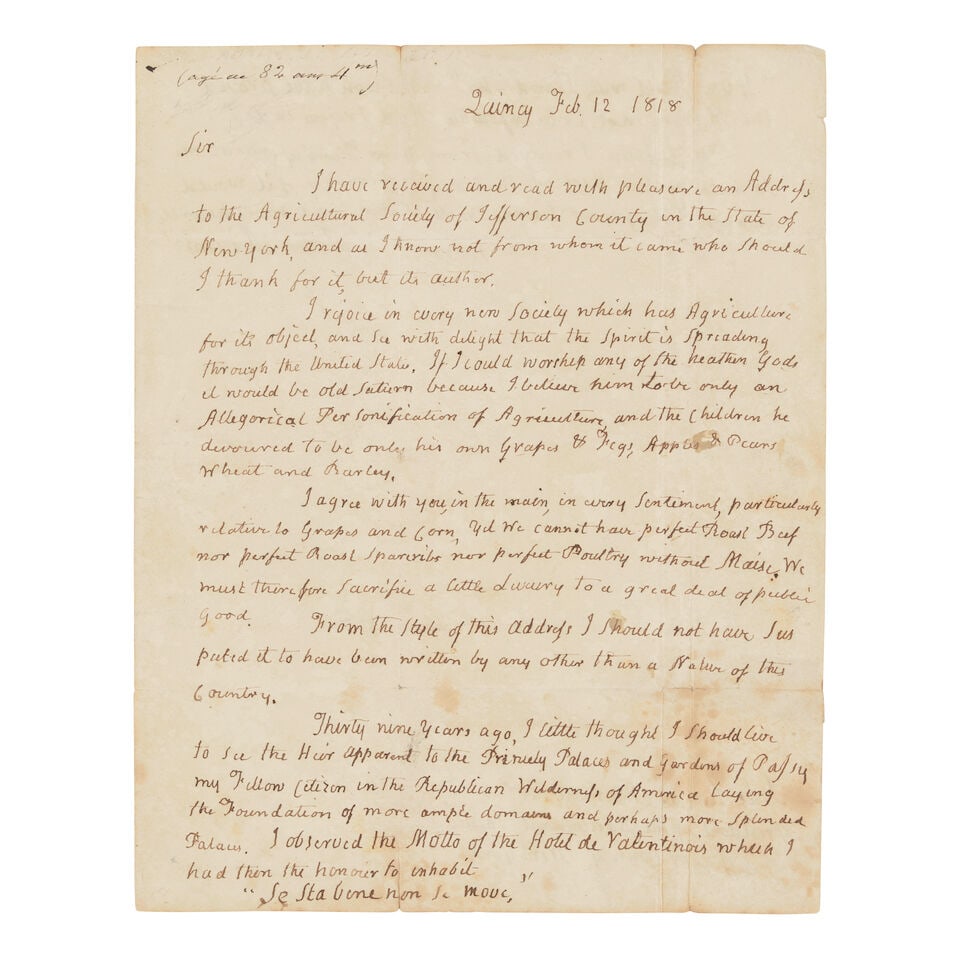 (agé de 82 ans 4 m)
Quincy Feb. 12 1818
Sir
I have received and read with pleasure an Address
to the Agricultural Society of Jefferson County in the State of
New York, and as I know not from whom it came who should
I thank for it, but its author.
I rejoice in every new Society which has Agriculture
for its object, and see with delight that the Spirit is Spreading
through the United State. If I could worship any of the heathen Gods
it would be old Saturn because I believe him to be only an
Allegorical Personification of Agriculture, and the Children he
devoured to be only his own Grapes & Figs, Apples & Pears
Wheat and Barley.
I agree with you, in the main, in every Sentiment, particularly
relative to Grapes and Corn, Yet We cannot have perfect Roast Beef
nor perfect Roast Spareribs nor perfect Poultry without Maise. We
must therefore Sacrifice a little Luxury to a great deal of public
Good.
From the Style of this Address I should not have Sus
pected it to have been written by any other than a Native of this
Country.
Thirty nine Years ago, I little thought I should live
to see the Heir Apparent to the Princely Palaces and Gardens of Passy
my Fellow Citizen in the Republican Wilderness of America laying
the Foundation of more ample domains and perhaps more Splended
Palaces. I observed the Motto of the Hotel de Valentinois which I
had then the honour to inhabit
"Se sta bene non se move,"